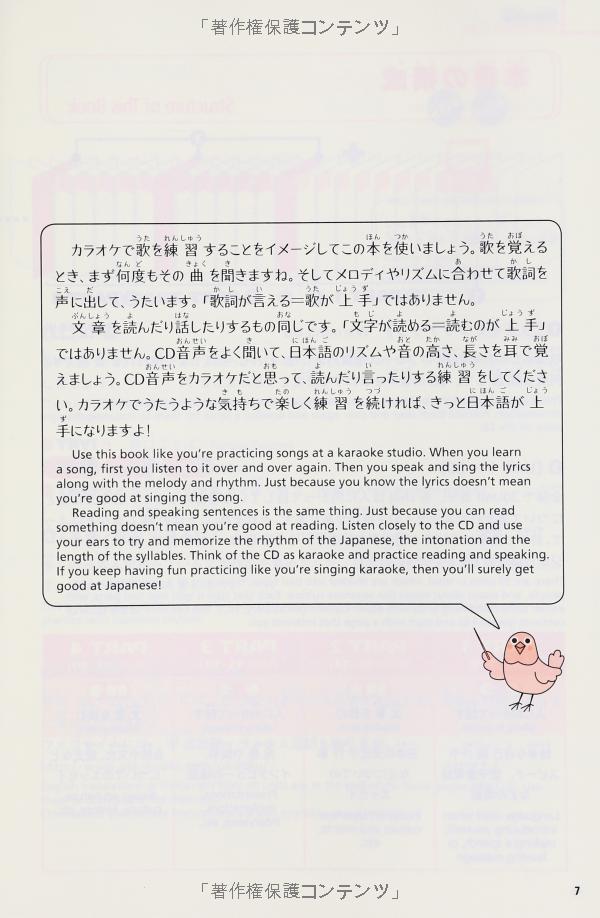 「著作権保護コンテンツ」
カラオケで歌を練習することをイメージしてこの本を使いましょう。歌を覚える
とき、まず何度もその曲を聞きますね。そしてメロディやリズムに合わせて歌詞を
声に出して、うたいます。「歌詞が言える＝歌が上手」ではありません。
文章を読んだり話したりするもの同じです。「文字が読める＝読むのが上手」
ではありません。CD音声をよく聞いて、日本語のリズムや音の高さ、長さを耳で覚
えましょう。CD音声をカラオケだと思って、読んだり言ったりする練習をしてくださ
い。カラオケでうたうような気持ちで楽しく練習を続ければ、きっと日本語が上
手になりますよ！
Use this book like you're practicing songs at a karaoke studio. When you learn
a song, first you listen to it over and over again. Then you speak and sing the lyrics
along with the melody and rhythm. Just because you know the lyrics doesn't mean
you're good at singing the song.
Reading and speaking sentences is the same thing. Just because you can read
something doesn't mean you're good at reading. Listen closely to the CD and use
your ears to try and memorize the rhythm of the Japanese, the intonation and the
length of the syllables. Think of the CD as karaoke and practice reading and speaking.
If you keep having fun practicing like you're singing karaoke, then you'll surely get
good at Japanese!
「著作権保護コンテンツ」
7